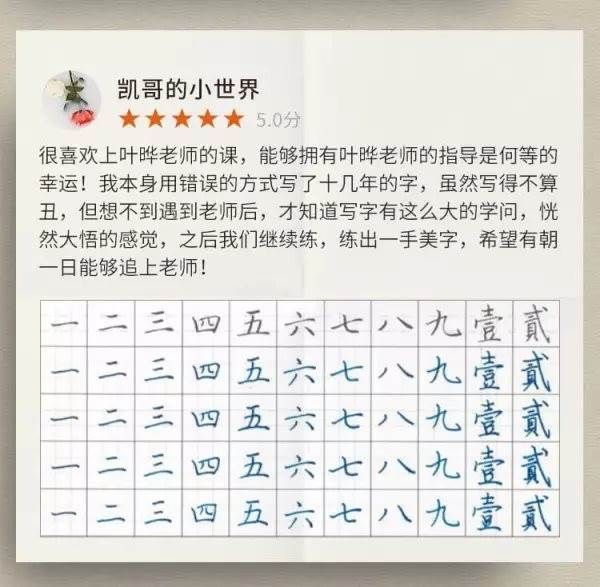 凯哥的小世界
5.0分
很喜欢上叶晔老师的课，能够拥有叶晔老师的指导是何等的
幸运！我本身用错误的方式写了十几年的字，虽然写得不算
丑，但想不到遇到老师后，才知道写字有这么大的学问，恍
然大悟的感觉，之后我们继续练，练出一手美字，希望有朝
一日能够追上老师！
一 二 三 四 五 六 七 八 九 壹 貳
一 二 三 四 五 六 七 八 九 壹 貳
一 二 三 四 五 六 七 八 九 壹 貳
一 二 三 四 五 六 七 八 九 壹 貳
一 二 三 四 五 六 七 八 九 壹 貳